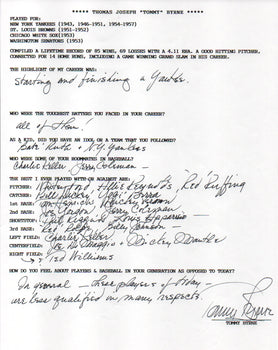 ***** THOMAS JOSEPH "TOMMY" BYRNE *****
PLAYED FOR:
NEW YORK YANKEES (1943, 1946-1951, 1954-1957)
ST. LOUIS BROWNS (1951-1952)
CHICAGO WHITE SOX (1953)
WASHINGTON SENATORS (1953)
COMPILED A LIFETIME RECORD OF 85 WINS, 69 LOSSES WITH A 4.11 ERA. A GOOD HITTING PITCHER,
CONNECTED FOR 14 HOME RUNS, INCLUDING A GAME WINNING GRAND SLAM IN HIS CAREER.
THE HIGHLIGHT OF MY CAREER WAS:
Starting and finishing a Yankee.
WHO WERE THE TOUGHEST BATTERS YOU FACED IN YOUR CAREER?
all of them!
AS A KID, DID YOU HAVE AN IDOL OR A TEAM THAT YOU FOLLOWED?
Babe Ruth & N.Y. Yankees
WHO WERE SOME OF YOUR ROOMMATES IN BASEBALL?
Charlie Keller Jerry Coleman
THE BEST I EVER PLAYED WITH OR AGAINST ARE:
PITCHER: Whitey Ford, Allie Reynolds, Red Ruffing
CATCHER: Bill Dickey Yogi Berra
1st BASE: Mickey Vernon
2nd BASE: Joe Gordon Jerry Coleman
SHORTSTOP: Luis Aparicio
3rd BASE: Red Rolfe, Billy Johnson
LEFT FIELD: Charlie Keller
CENTERFIELD: Joe Di Maggio & Mickey Mantle
RIGHT FIELD: Ted Williams
HOW DO YOU FEEL ABOUT PLAYERS & BASEBALL IN YOUR GENERATION AS OPPOSED TO TODAY?
In general — players of today —
are less qualified in many respects.
Tommy Byrne
TOMMY BYRNE